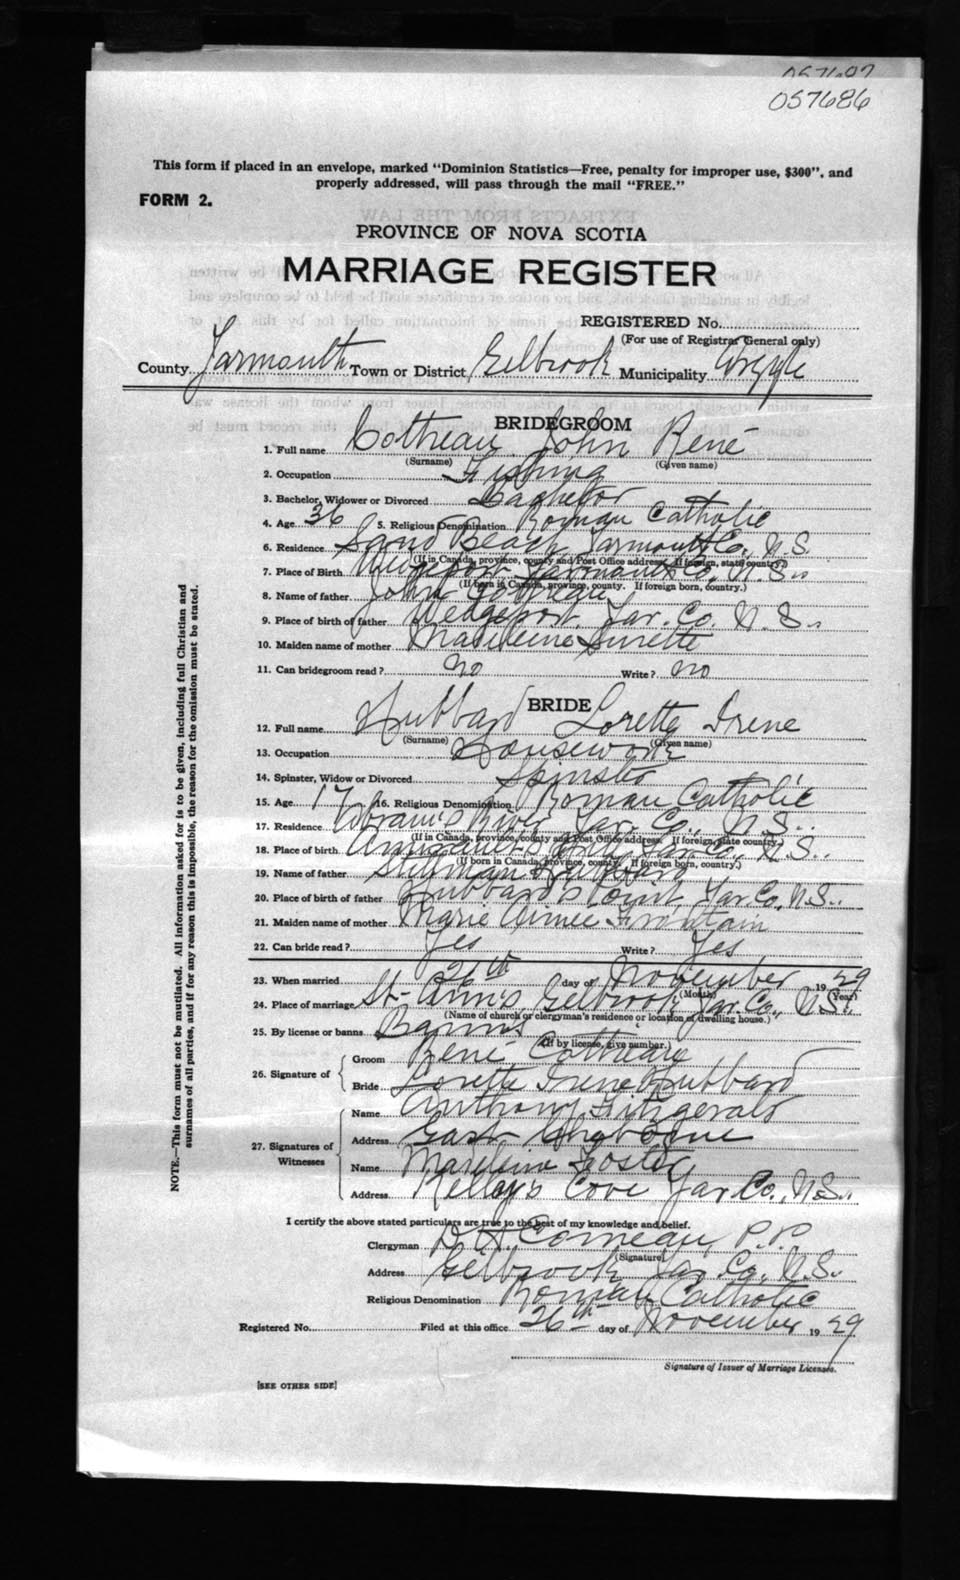 057686
This form if placed in an envelope, marked "Dominion Statistics—Free, penalty for improper use, $300", and
properly addressed, will pass through the mail "FREE."
FORM 2.
PROVINCE OF NOVA SCOTIA
MARRIAGE REGISTER
REGISTERED No.
(For use of Registrar General only)
County Yarmouth Town or District Eelbrook Municipality Argyle
BRIDEGROOM
1. Full name Cottreau John René
(Surname) (Given name)
2. Occupation Fishing
3. Bachelor, Widower or Divorced Bachelor
4. Age 36 5. Religious Denomination Roman Catholic
6. Residence Sand Beach, Yarmouth Co., N.S.
(If in Canada, province, county and Post Office address. If foreign, state country.)
7. Place of Birth Wedgeport Yarmouth Co., N.S.
(If born in Canada, province, county. If foreign born, country.)
8. Name of father John Cottreau
9. Place of birth of father Wedgeport Yar. Co. N.S.
10. Maiden name of mother Madeleine Surette
11. Can bridegroom read? No Write? No
BRIDE
12. Full name Hubbard Lorette Irene
(Surname) (Given name)
13. Occupation Housework
14. Spinster, Widow or Divorced Spinster
15. Age 17 16. Religious Denomination Roman Catholic
17. Residence Abram's River Yar. Co., N.S.
(If in Canada, province, county and Post Office address. If foreign, state country.)
18. Place of birth Yar. Co., N.S.
(If born in Canada, province, county. If foreign born, country.)
19. Name of father Hubbard
20. Place of birth of father Hubbard's Point, Yar. Co., N.S.
21. Maiden name of mother Marie Aimee Frontain
22. Can bride read? Yes Write? Yes
23. When married 26th day of November 19 29
(Month) (Year)
24. Place of marriage St-Ann's Eelbrook Yar. Co., N.S.
(Name of church or clergyman's residence or location of dwelling house.)
25. By license or banns Banns
(If by license, give number.)
26. Signature of
Groom René Cottreau
Bride Lorette Irene Hubbard
27. Signatures of Witnesses
Name Anthony Fitzgerald
Address East
Name Foster
Address Kelley's Cove Yar Co., N.S.
I certify the above stated particulars are true to the best of my knowledge and belief.
Clergyman D H Comeau, P.P
(Signature)
Address Eelbrook Yar. Co., N.S.
Religious Denomination Roman Catholic
Registered No. Filed at this office 26th day of November 19 29
Signature of Issuer of Marriage Licenses.
[SEE OTHER SIDE]
NOTE.—This form must not be mutilated. All information asked for is to be given, including full Christian and
surnames of all parties, and if for any reason this is impossible, the reason for the omission must be stated.